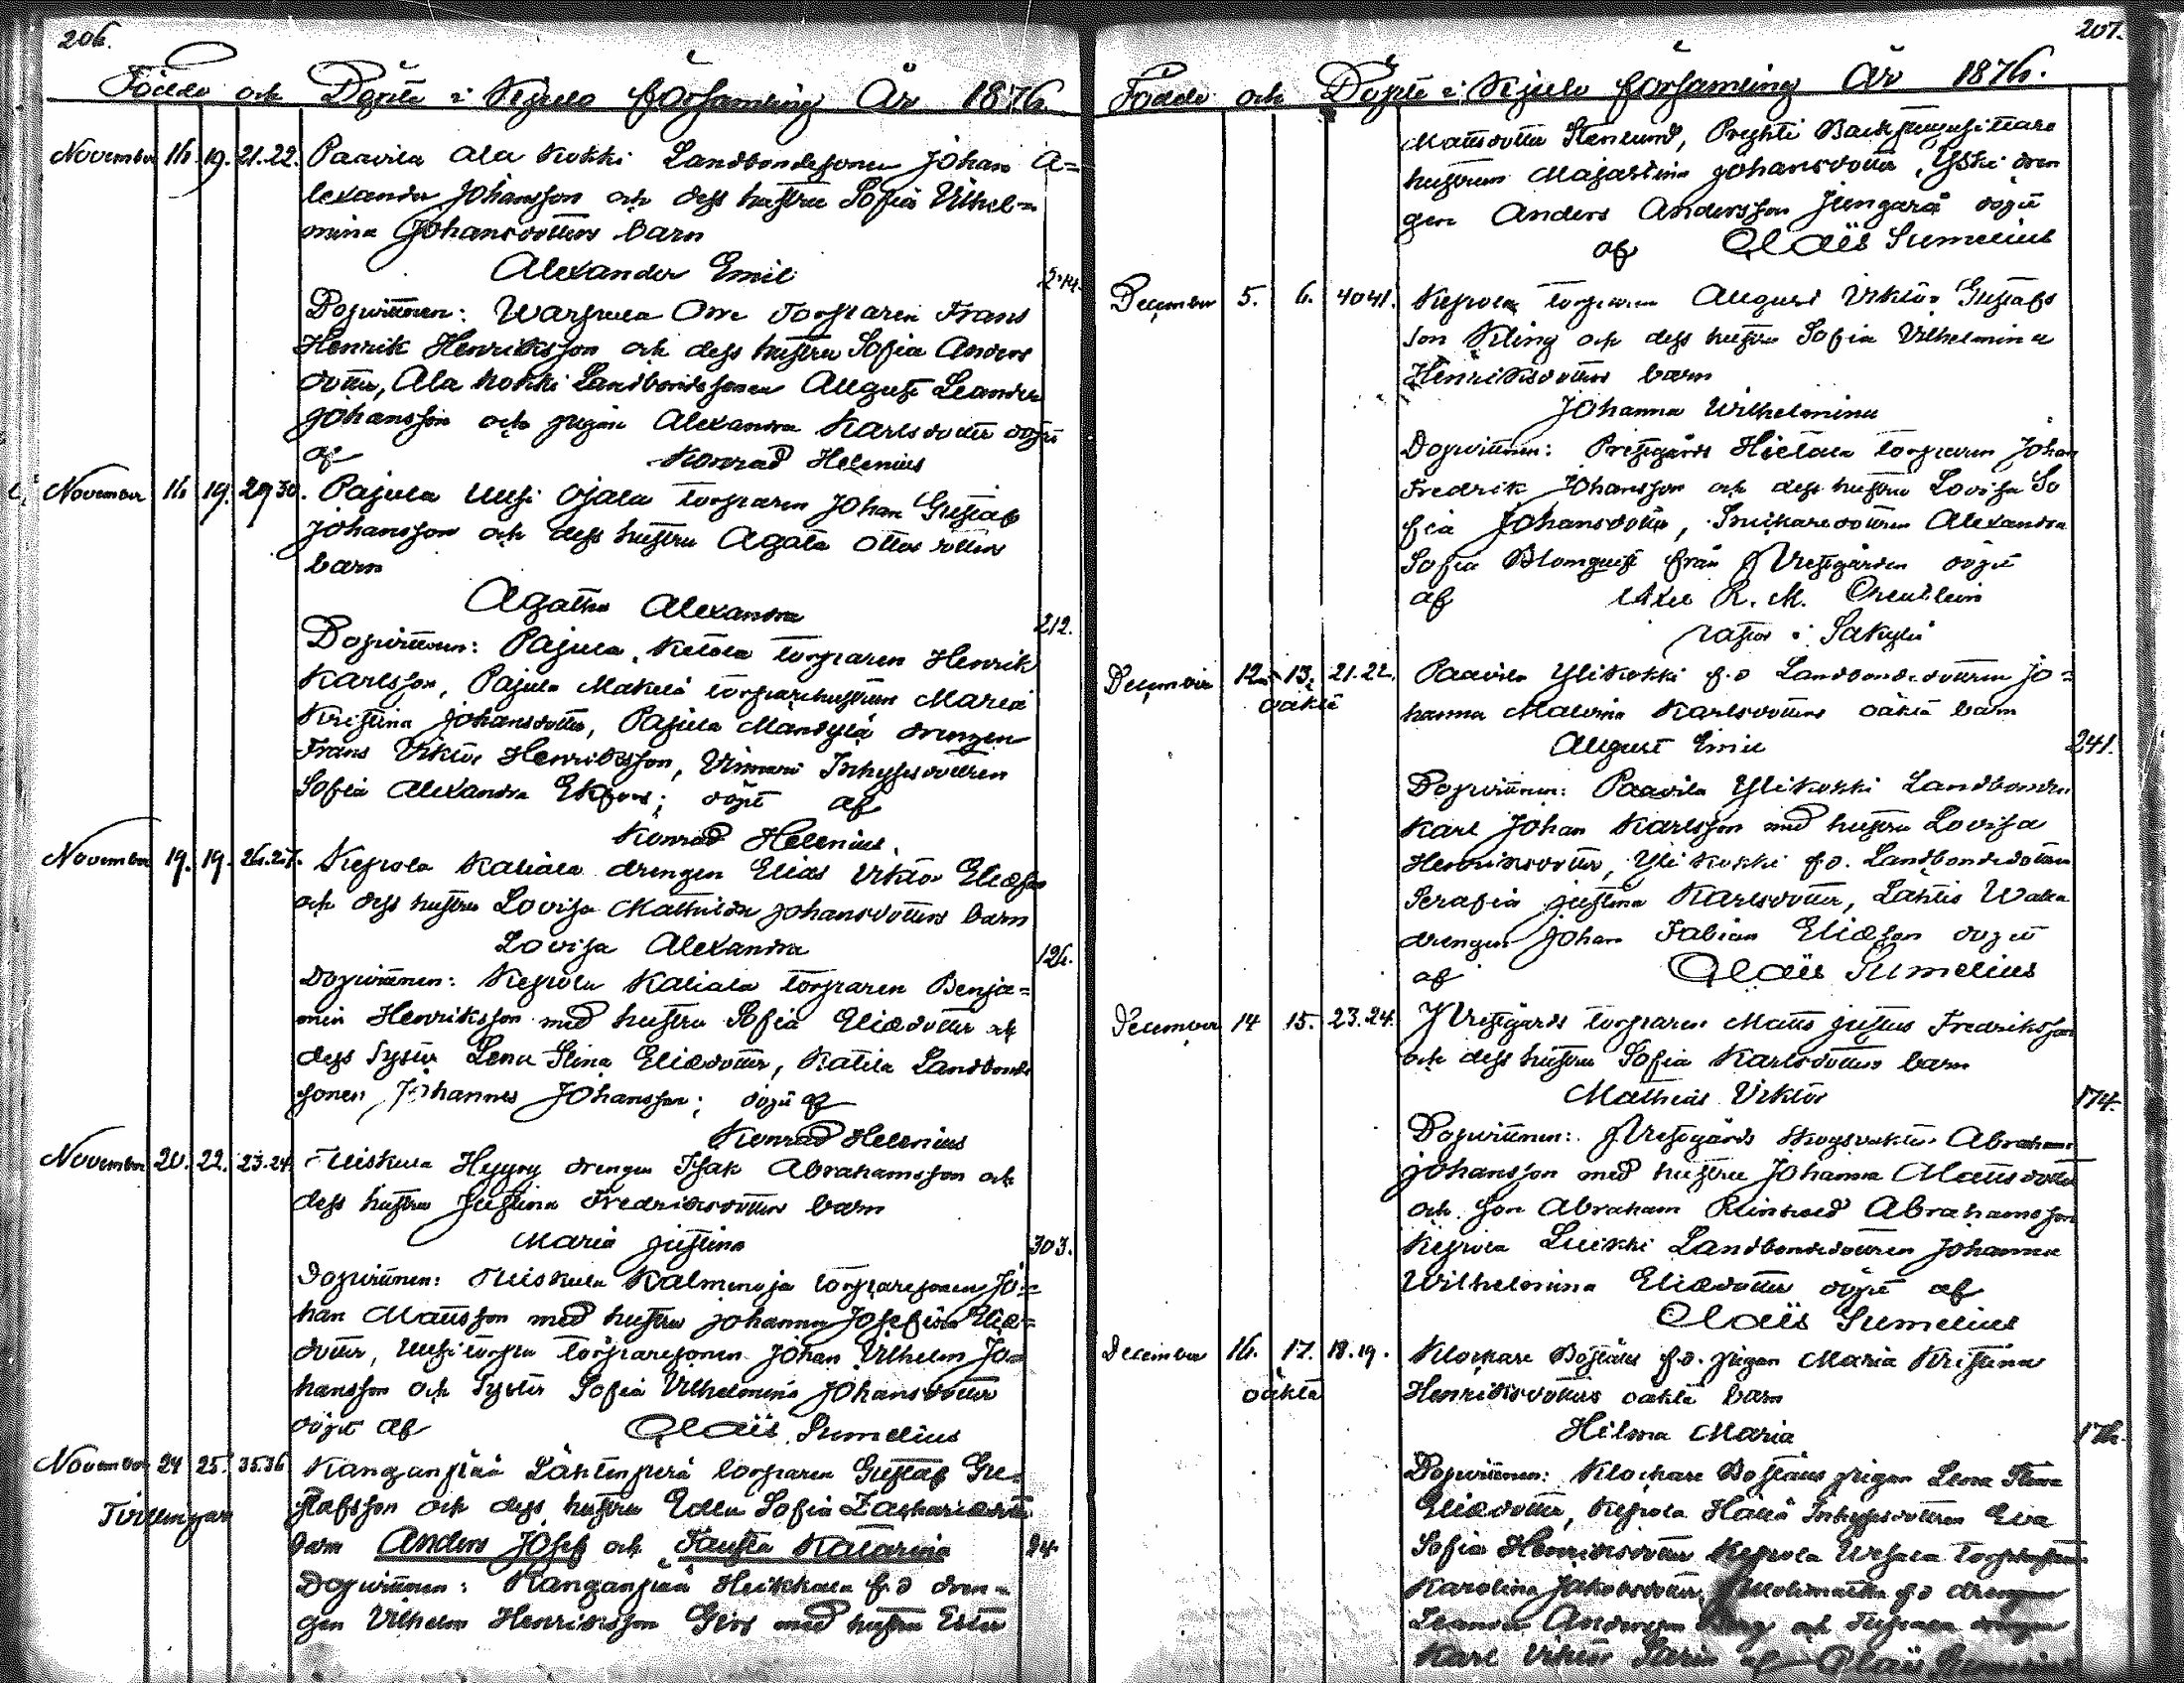 206.
Födde och Döpte i Kjulo församling År 1876
November 16. 19. 21.22. Paavila Ala Kokki Landbondesonen Johan A=
lexander Johansson och dess hustru Sofia Vilhel=
mina Johansdotters barn
Alexander Emil 244.
Dopvittnen: Warpula Torparen Frans
Henrik Henriksson och dess hustru Sofia Anders
dotter, Ala Kokki Landbondesonen August Leander
Johansson och pigan Alexandra Karlsdotter döpt
af Konrad Helenius
November 16 19. 29 30. Pajula Uusi Ojala torparen Johan Gustaf
Johansson och dess hustru Agata Ottos dotters
barn
Agatha Alexandra 212.
Dopvittnen: Pajula Ketola torparen Henrik
Karlsson, Pajula Makelä torparehustrun Maria
Kristina Johansdotter, Pajula Mandylä drengen
Frans Viktor Henriksson, Vinnari Inhysesdottren
Sofia Alexandra Ekfors; döpt af
Konrad Helenius.
November 19. 19. 26.27. Kepola Kaliala drengen Elias Viktor Eliæson
och dess hustru Lovisa Mathilda Johansdotters barn
Lovisa Alexandra 126.
Dopvittnen: Kepola Kaliala torparen Benja=
min Henriksson med hustru Sofia Eliædotter och
dess syster Lena Stina Eliædotter, Katila Landbonde
sonen Johannes Johansson; döpt af
Konrad Helenius
November 20. 22. 23.24. Tuiskula Hyyry drengen Isak Abrahamsson och
dess hustru Justina Fredriksdotters barn
Maria Justina 303.
Dopvittnen: Tuiskula Kalmenoja torparesonen Jo=
han Mattsson med hustru Johanna Josefina Eliæ=
dotter, Uusitorpa torparesonen Johan Vilhelm Jo=
hansson och syster Sofia Vilhelmina Johansdotter
döpt af Claës Sumelius
November 24 25. 35.36 Kanganpää Lähtenperä torparen Gustaf Gu=
Tvillingar stafsson och dess hustru Edla Sofia Zachariædotters
barn Anders Josef och Fausta Katarina 94.
Dopvittnen: Kanganpää Heikkala f.d dren=
gen Vilhelm Henriksson Girs med hustru Ester
207.
Födde och Döpte i Kjulo församling År 1876.
Mattsdotter Stenlund, Backstugusittare
hustrun Majastina Johansdotter, Yski dren
gen Anders Andersson Jungarä döpt
af Claës Sumelius
December 5. 6. 40 41. Kepola torparen August Viktor Gustafs
son Kling och dess hustru Sofia Vilhelmina
Henriksdotters barn
Johanna Wilhelmina
Dopvittnen: Prestgårds Hietala torparen Johan
Fredrik Johansson och dess hustru Lovisa So
fia Johansdotter, Snickaredottren Alexandra
Sofia Blomquist från Prestgården döpt
af Axel R. M. Cheutlein
Pastor i Säkylä
December 12. 13. 21.22. Paavila Ylikokki f.d Landbondedottren Jo=
oäkta hanna Malvina Karlsdotters oäkta barn
August Emil 241.
Dopvittnen: Paavila Ylikokki Landbonden
Karl Johan Karlsson med hustru Lovisa
Henriksdotter, Yli Kokki f.d. Landbondedottren
Serafia Justina Karlsdotter, Lahtis Walta
drengen Johan Fabian Eliæson döpt
af Claës Sumelius
December 14 15. 23.24. Prestgårds torparen Matts Justus Fredriksson
och dess hustru Sofia Karlsdotters barn
Mathias Viktor 174.
Dopvittnen: Prestgårds skogsvaktar Abraham
Johansson med hustru Johanna Mattsdotter
och son Abraham Reinhold Abrahamsson
Kepola Luikki Landbondedottren Johanna
Wilhelmina Eliædotter döpt af
Claës Sumelius
December 16. 17. 18.19. Klockare Boställs f.d. pigan Maria Kristina
oäkta Henriksdotters oäkta barn
Hilma Maria 176.
Dopvittnen: Klockare Boställs pigan Lena Stina
Eliædotter, Kepola Inhysesdottren Eva
Sofia Henriksdotter Kepola
Karolina Jakobsdotter, f.d drengen
Leander Andersson och drengen
Karl Viktor af Claës Sumelius